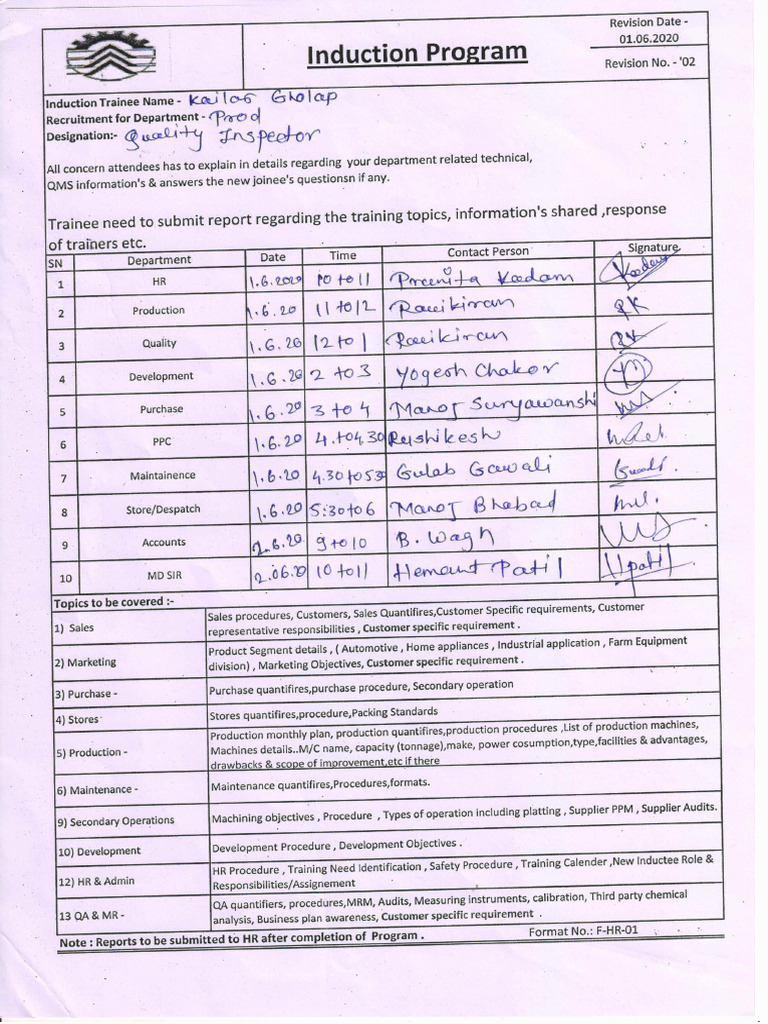 Revision Date -
01.06.2020
Induction Program
Revision No. - '02
Induction Trainee Name - Kailas Gholap
Recruitment for Department - Prod
Designation:- Quality Inspector
All concern attendees has to explain in details regarding your department related technical,
QMS information's & answers the new joinee's questionsn if any.
Trainee need to submit report regarding the training topics, information's shared ,response
of trainers etc.
SN Department Date Time Contact Person Signature
1 HR 1.6.2020 10 to 11 Preenita Kadam Kadam
2 Production 1.6.20 11 to 12 Ravikiran RK
3 Quality 1.6.20 12 to 1 Ravikiran RK
4 Development 1.6.20 2 to 3 Yogesh Chakor
5 Purchase 1.6.20 3 to 4 Manoj Suryawanshi
6 PPC 1.6.20 4.to4.30 Rushikesh
7 Maintainence 1.6.20 4.30 to 530 Gulab Gawali
8 Store/Despatch 1.6.20 5:30 to 6 Manoj Bhabad
9 Accounts 2.6.20 9 to 10 B. Wagh
10 MD SIR 2.06.20 10 to 11 Hemant Patil Hpatil
Topics to be covered :-
1) Sales Sales procedures, Customers, Sales Quantifires,Customer Specific requirements, Customer
representative responsibilities , Customer specific requirement .
2) Marketing Product Segment details , ( Automotive , Home appliances , Industrial application , Farm Equipment
division) , Marketing Objectives, Customer specific requirement .
3) Purchase - Purchase quantifires,purchase procedure, Secondary operation
4) Stores Stores quantifires,procedure,Packing Standards
5) Production - Production monthly plan, production quantifires,production procedures ,List of production machines,
Machines details..M/C name, capacity (tonnage),make, power cosumption,type,facilities & advantages,
drawbacks & scope of improvement,etc if there
6) Maintenance - Maintenance quantifires,Procedures,formats.
9) Secondary Operations Machining objectives , Procedure , Types of operation including platting , Supplier PPM , Supplier Audits.
10) Development Development Procedure , Development Objectives .
12) HR & Admin HR Procedure , Training Need Identification , Safety Procedure , Training Calender ,New Inductee Role &
Responsibilities/Assignement
13 QA & MR - QA quantifiers, procedures,MRM, Audits, Measuring instruments, calibration, Third party chemical
analysis, Business plan awareness, Customer specific requirement .
Note : Reports to be submitted to HR after completion of Program .
Format No.: F-HR-01